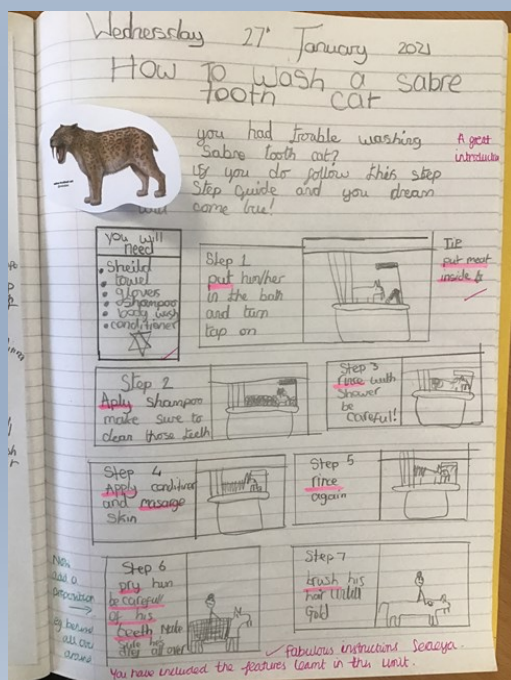 Wednesday 27th January 2021
How To wash a sabre
tooth cat
you had trouble washing
Sabre tooth cat?
if you do follow this step
Step guide and you dream
come true!
A great
introduction
you will
need
sheild
towel
glovers
shampoo
body wash
conditioner
Step 1
put him/her
in the bath
and turn
tap on
TIP
put meat
inside it
Step 2
Aply shampoo
make sure to
clean those teeth
Step 3
rince with
shower
be
careful!
Step 4
Apply conditinor
and masarge
skin
Step 5
rince
again
Step 6
Dry him
be carefull
of his
teeth
dry all over
Step 7
brush his
hair untill
Gold
Now
add a
preposition
eg behind,
all over
around
Fabulous instructions
You have included the features learnt in this unit.